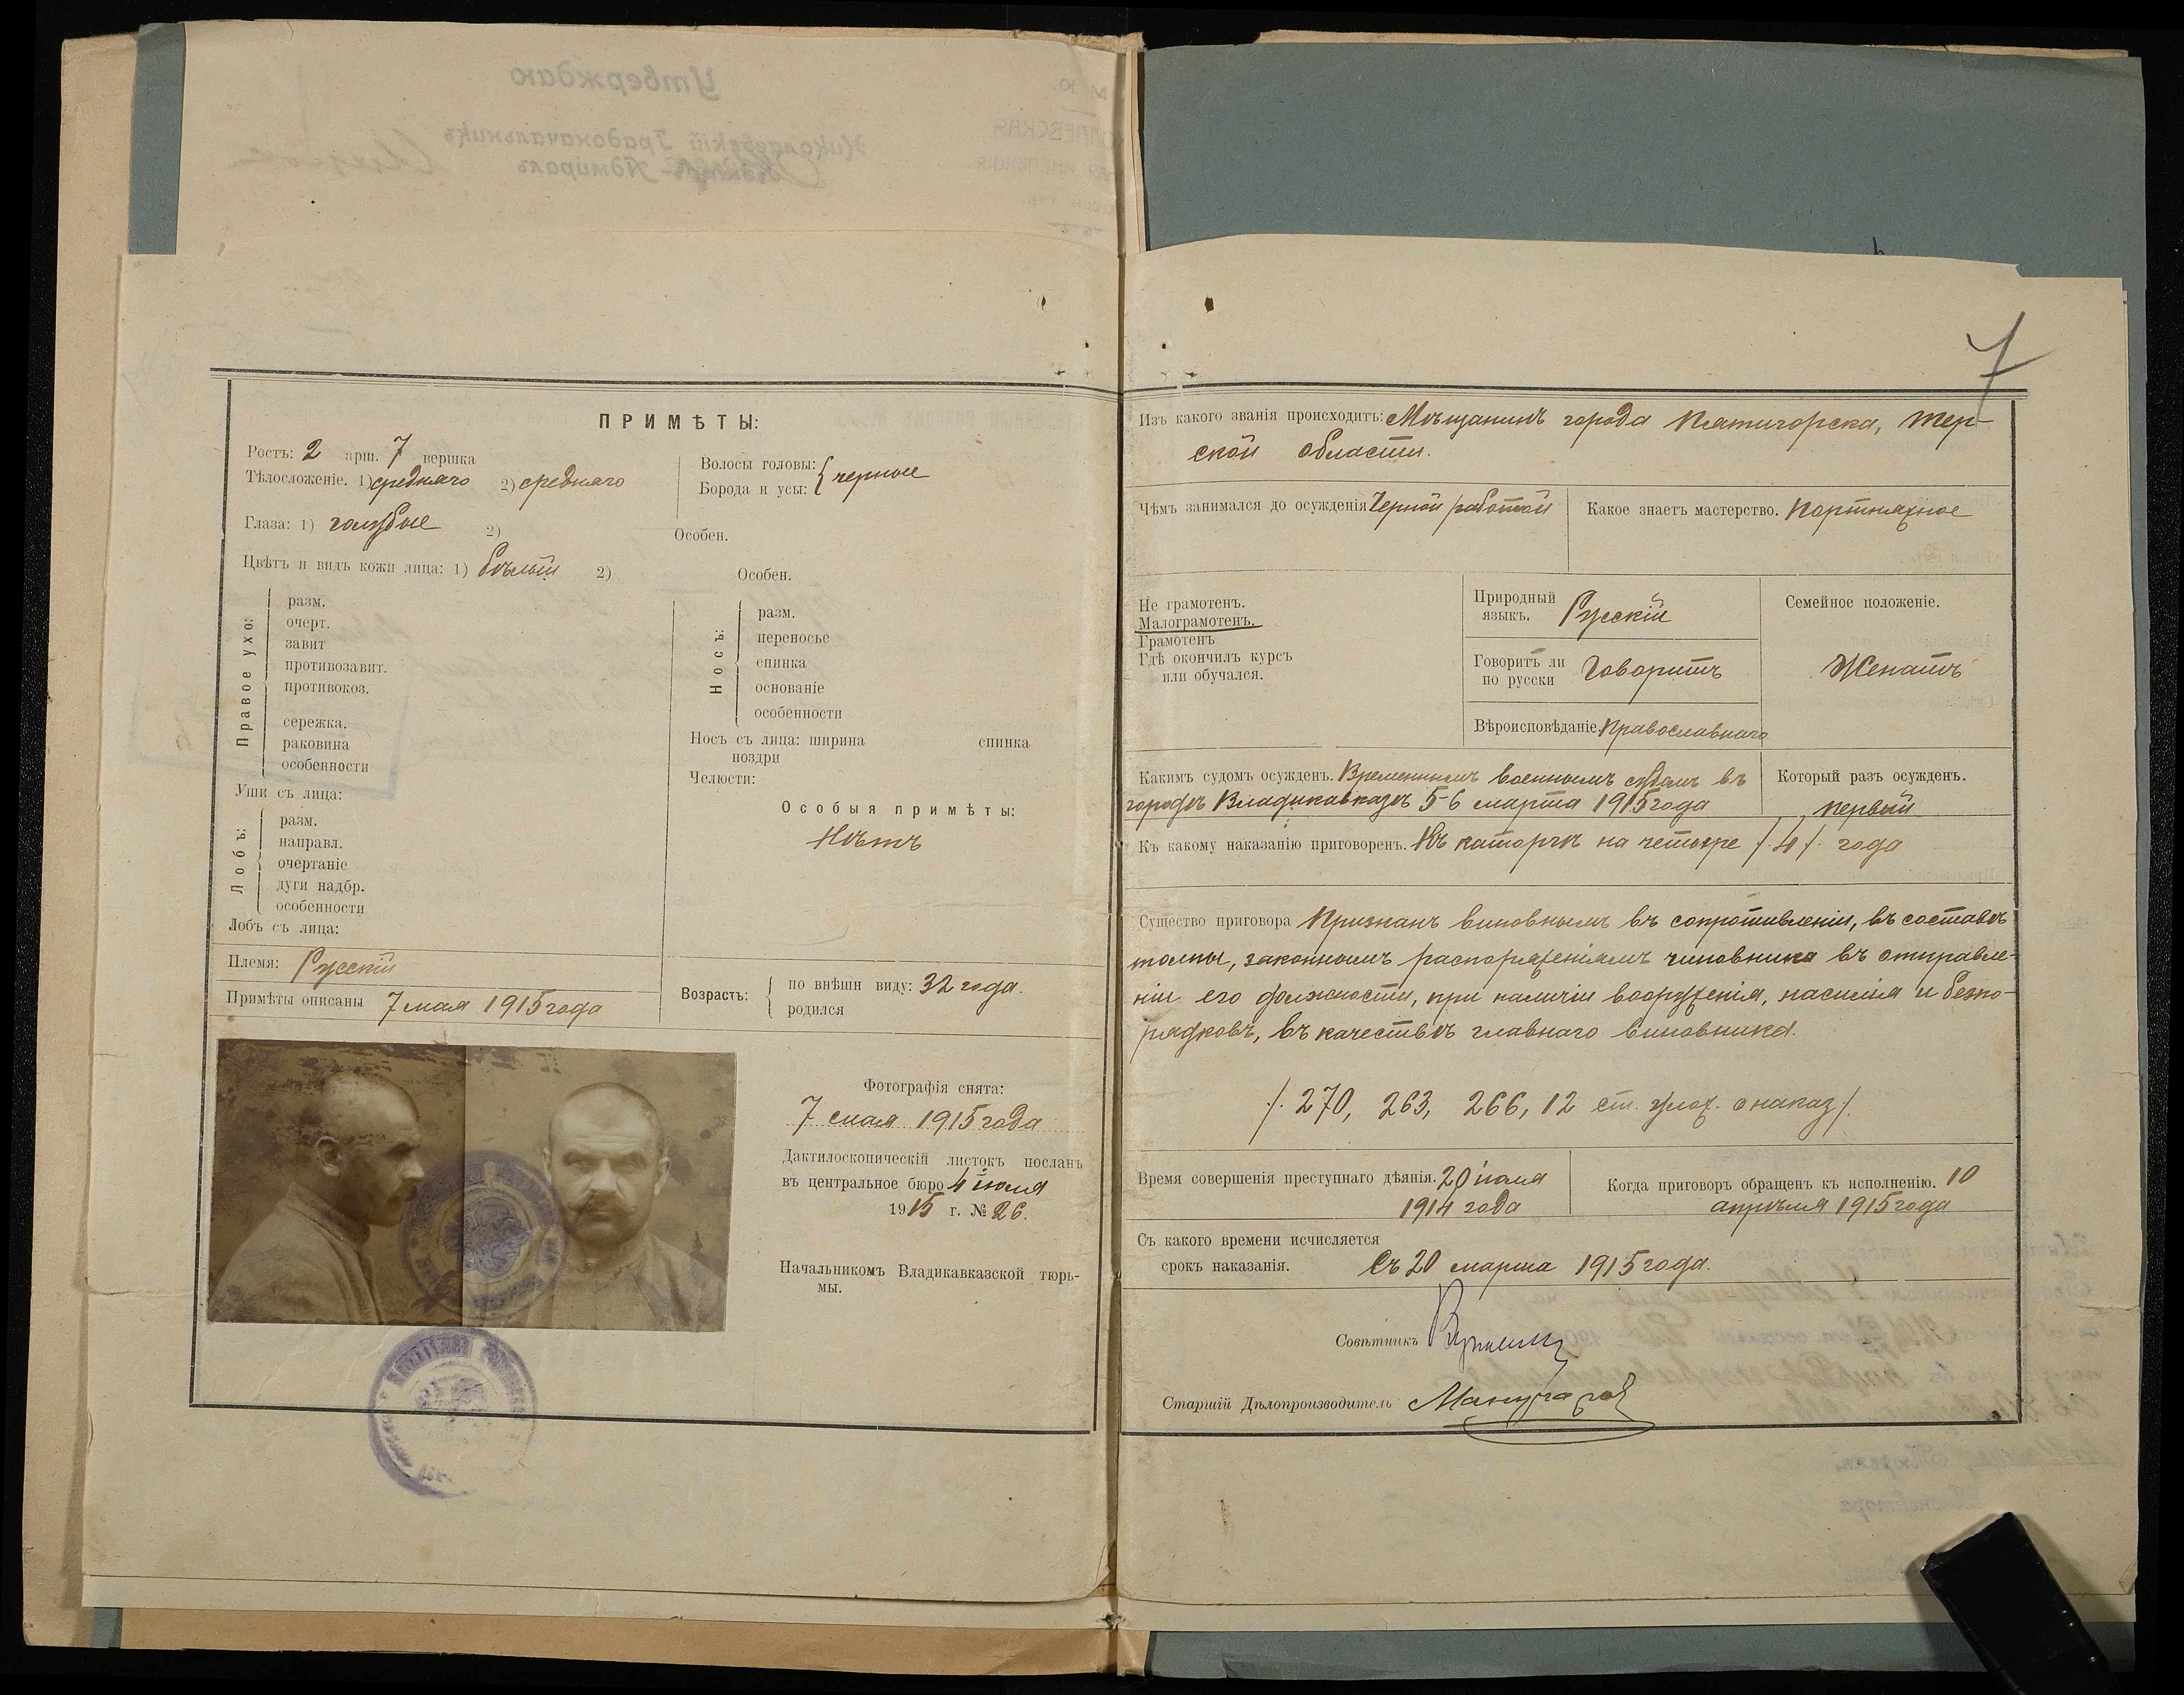 7
ПРИМѢТЫ:
Ростъ: 2 арш. 7 вершка
Тѣлосложеніе. 1) средняго 2) средняго
Волосы головы: { черные
Борода и усы:
Глаза: 1) голубые 2)
Особен.
Цвѣтъ и видъ кожи лица: 1) бѣлый 2)
Особен.
Правое ухо:
разм.
очерт.
завит
противозавит.
противокоз.
сережка.
раковина
особенности
Носъ:
разм.
переносье
спинка
основаніе
особенности
Носъ съ лица: ширина спинка
ноздри
Челюсти:
Уши съ лица:
Особыя примѣты:
Нѣтъ
Лобъ:
разм.
направл.
очертаніе
дуги надбр.
особенности
Лобъ съ лица:
Племя: Русскій
Примѣты описаны 7 мая 1915 года
Возрастъ:
по внѣшн виду: 32 года.
родился
Фотографія снята:
7 мая 1915 года
Дактилоскопическій листокъ посланъ
въ центральное бюро 4 іюля
1915 г. № 26.
Начальникомъ Владикавказской тюрь-
мы.
Изъ какого званія происходитъ: Мѣщанинъ города Пятигорска, Тер-
ской области.
Чѣмъ занимался до осужденія Черной работой
Какое знаетъ мастерство. Портняжное
Не грамотенъ.
Малограмотенъ.
Грамотенъ
Гдѣ окончилъ курсъ
или обучался.
Природный
языкъ. Русскій
Говоритъ ли
по русски Говоритъ
Вѣроисповѣданіе. Православнаго
Семейное положеніе.
Женатъ
Какимъ судомъ осужденъ. Временнымъ военнымъ судомъ въ
городѣ Владикавказѣ 5-6 марта 1915 года
Который разъ осужденъ.
первый
Къ какому наказанію приговоренъ. Къ каторгѣ на четыре /.4/. года
Существо приговора Признанъ виновнымъ въ сопротивленіи, въ составѣ
толпы, законнымъ распоряженіямъ чиновника въ отправле-
ніи его должности, при наличіи вооруженія, насилія и безпо-
рядковъ, въ качествѣ главнаго виновника.
/. 270, 263, 266, 12 ст. улож. о наказ/.
Время совершенія преступнаго дѣянія. 20 іюля
1914 года
Когда приговоръ обращенъ къ исполненію. 10
апрѣля 1915 года
Съ какого времени исчисляется
срокъ наказанія. Съ 20 марта 1915 года.
Совѣтникъ
Старшій Дѣлопроизводитель